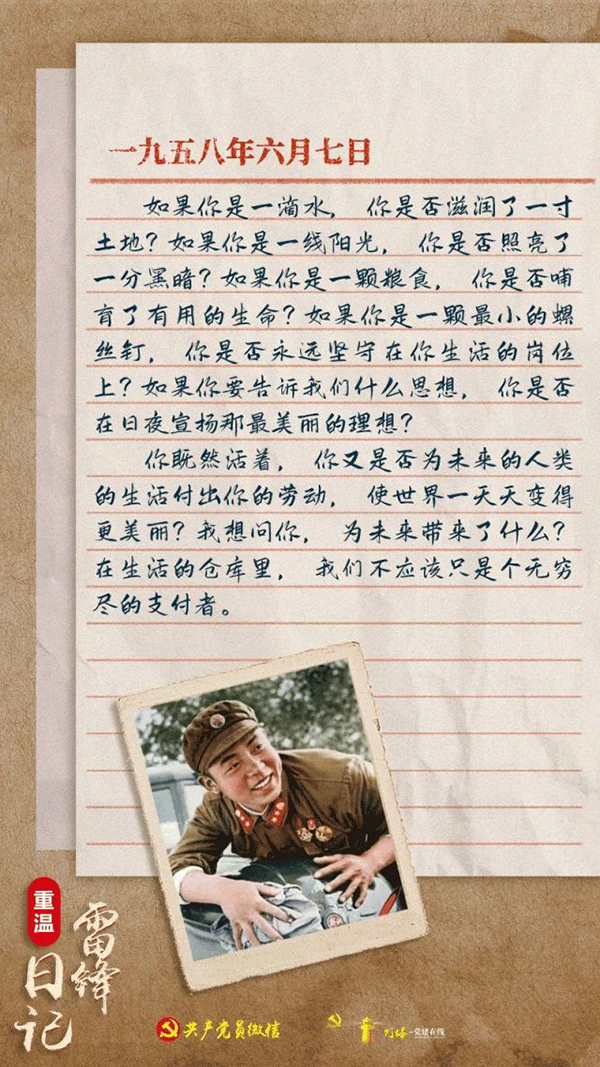 一九五八年六月七日
如果你是一滴水， 你是否滋润了一寸
土地？如果你是一线阳光， 你是否照亮了
一分黑暗？如果你是一颗粮食， 你是否哺
育了有用的生命？如果你是一颗最小的螺
丝钉， 你是否永远坚守在你生活的岗位
上？如果你要告诉我们什么思想， 你是否
在日夜宣扬那最美丽的理想？
你既然活着， 你又是否为未来的人类
的生活付出你的劳动， 使世界一天天变得
更美丽？我想问你， 为未来带来了什么？
在生活的仓库里， 我们不应该只是个无穷
尽的支付者。
重温
雷锋
日记
共产党员微信
党建在线